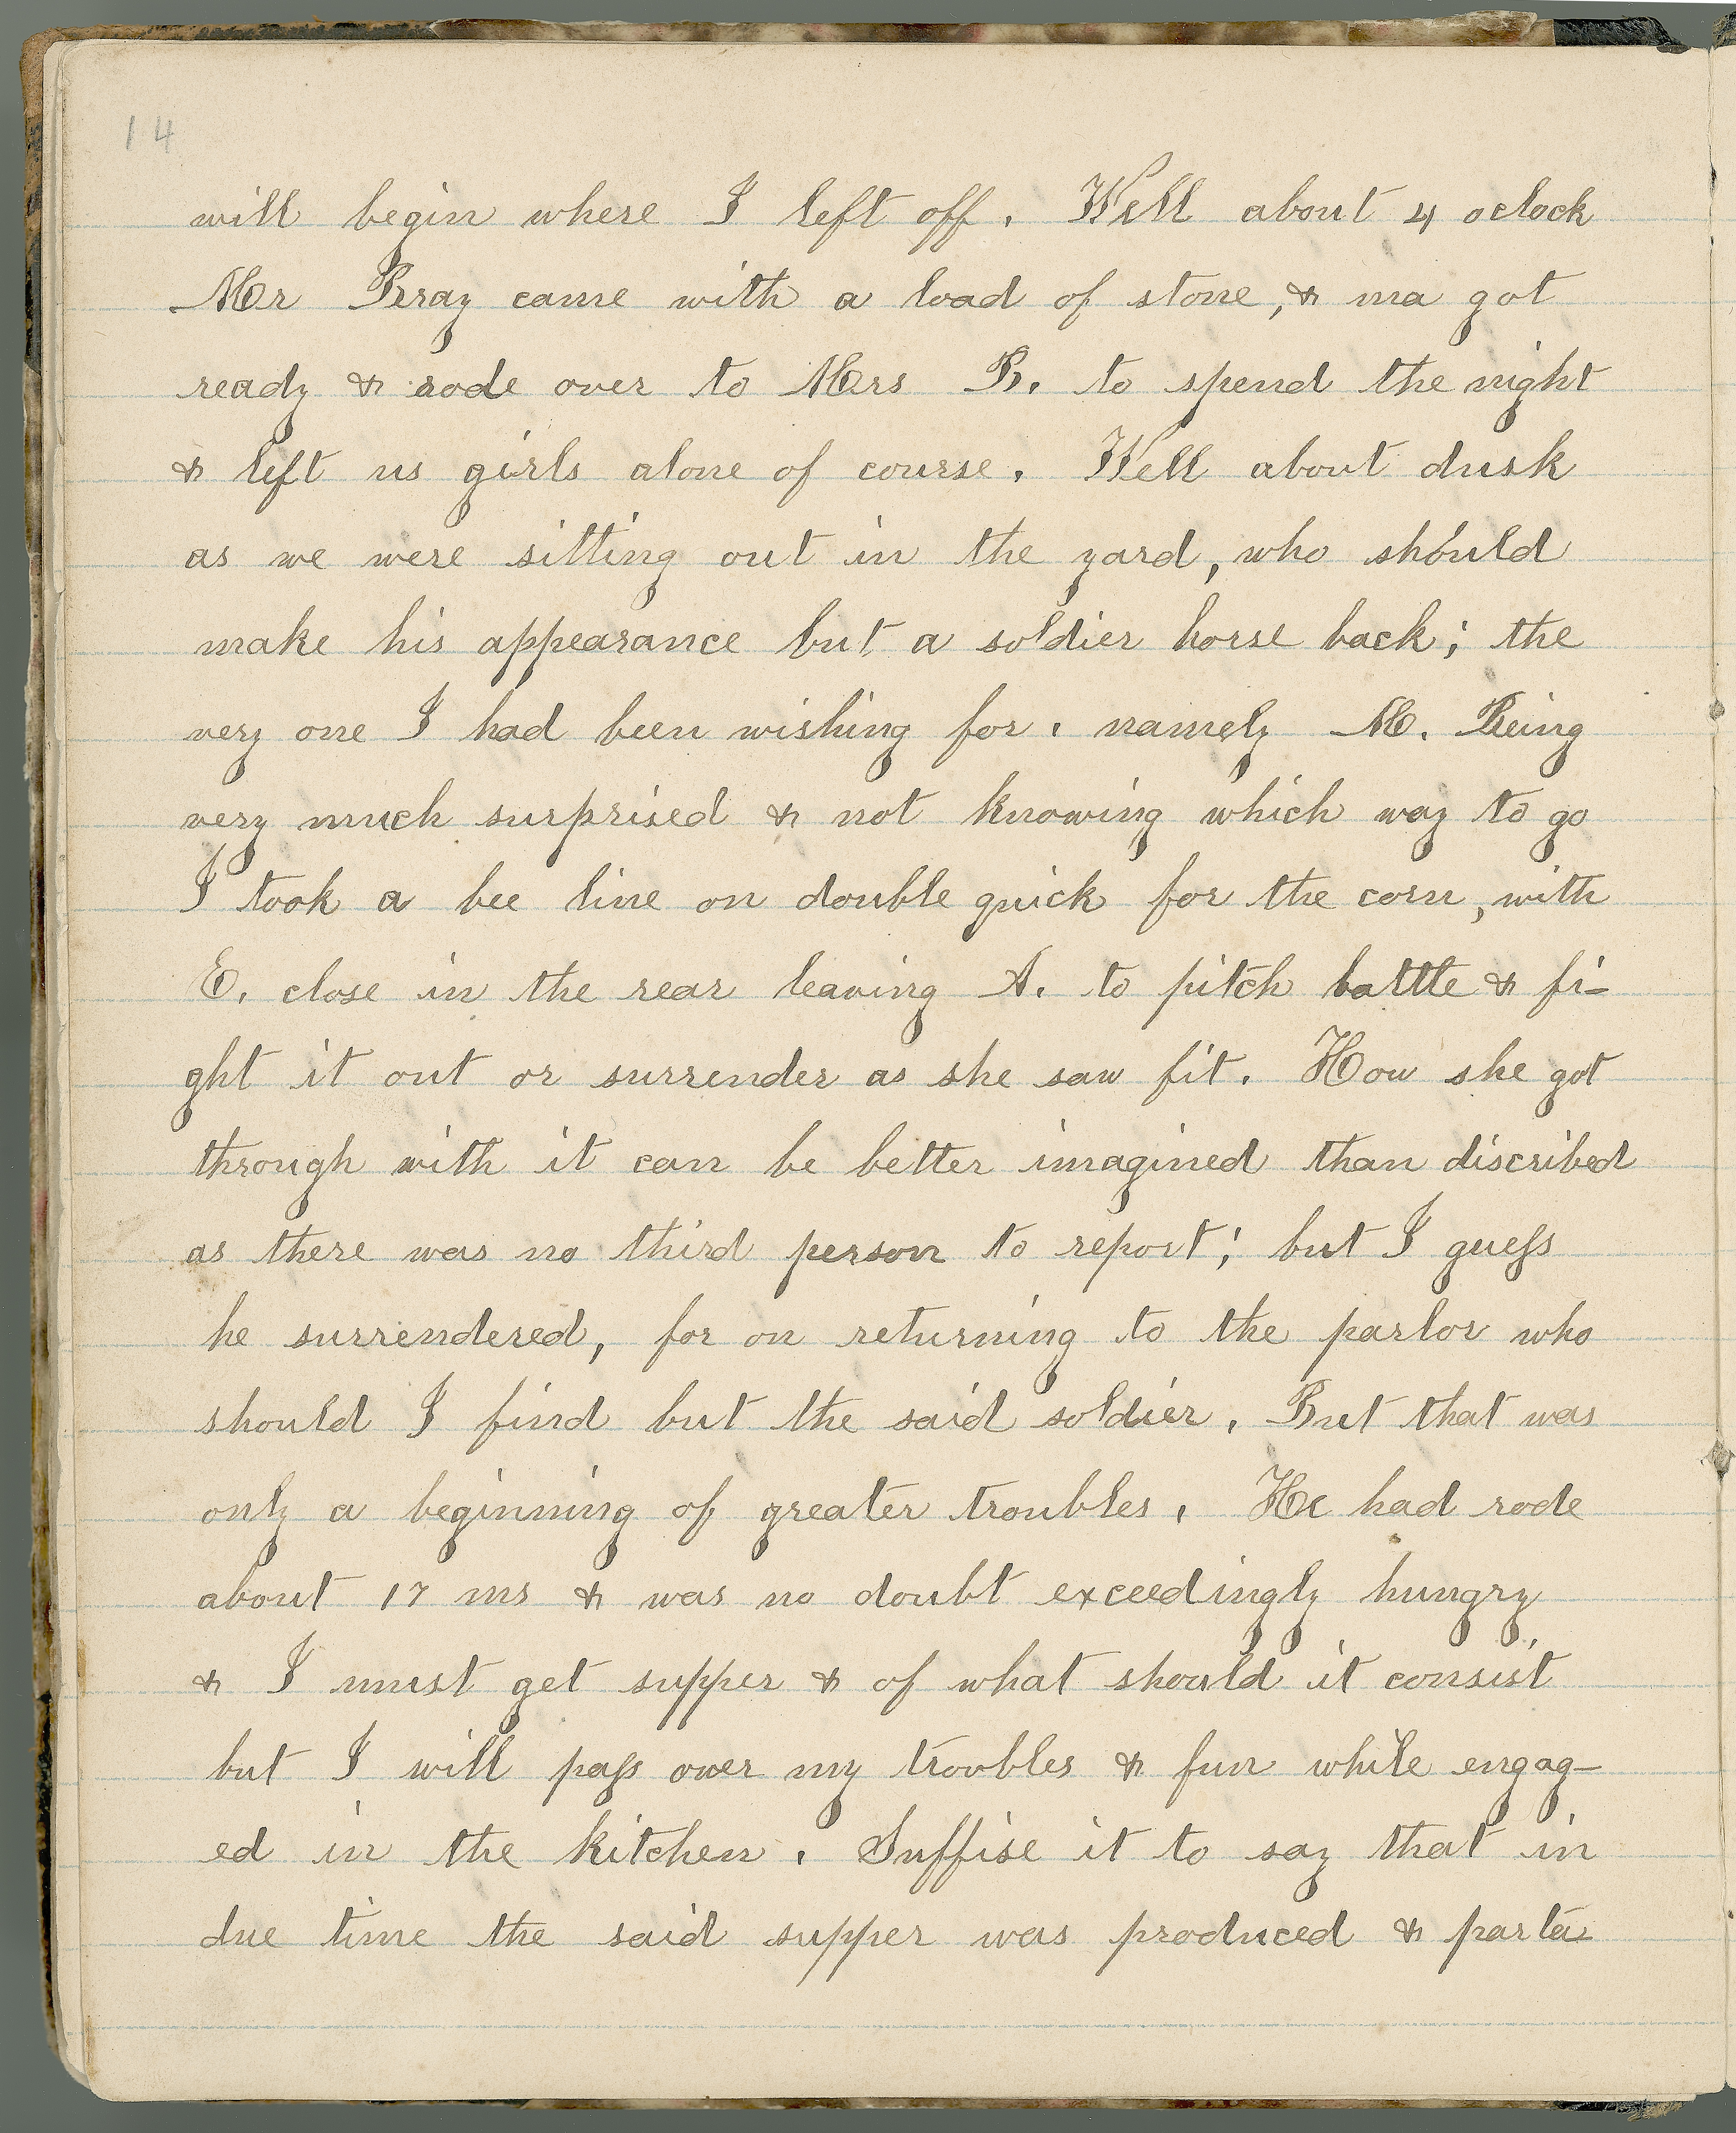 14
will begin where I left off. Well about 4 oclock
Mr Bray came with a load of stone, & ma got
ready & rode over to Mrs B. to spend the night
& left us girls alone of course. Well about dusk
as we were sitting out in the yard, who should
make his appearance but a soldier horse back; the
very one I had been wishing for. namely M. Being
very much surprised & not knowing which way to go
I took a bee line on double quick for the corn, with
E. close in the rear leaving A. to pitch battle & fi-
ght it out or surrender as she saw fit. How she got
through with it can be better imagined than discribed
as there was no third person to report; but I guess
he surrendered, for on returning to the parlor who
should I find but the said soldier. But that was
only a beginning of greater troubles. He had rode
about 17 ms & was no doubt exceedingly hungry
& I must get supper & of what should it consist
but I will pass over my troubles & fun while engag-
ed in the kitchen. Suffise it to say that in
due time the said supper was produced & parta-